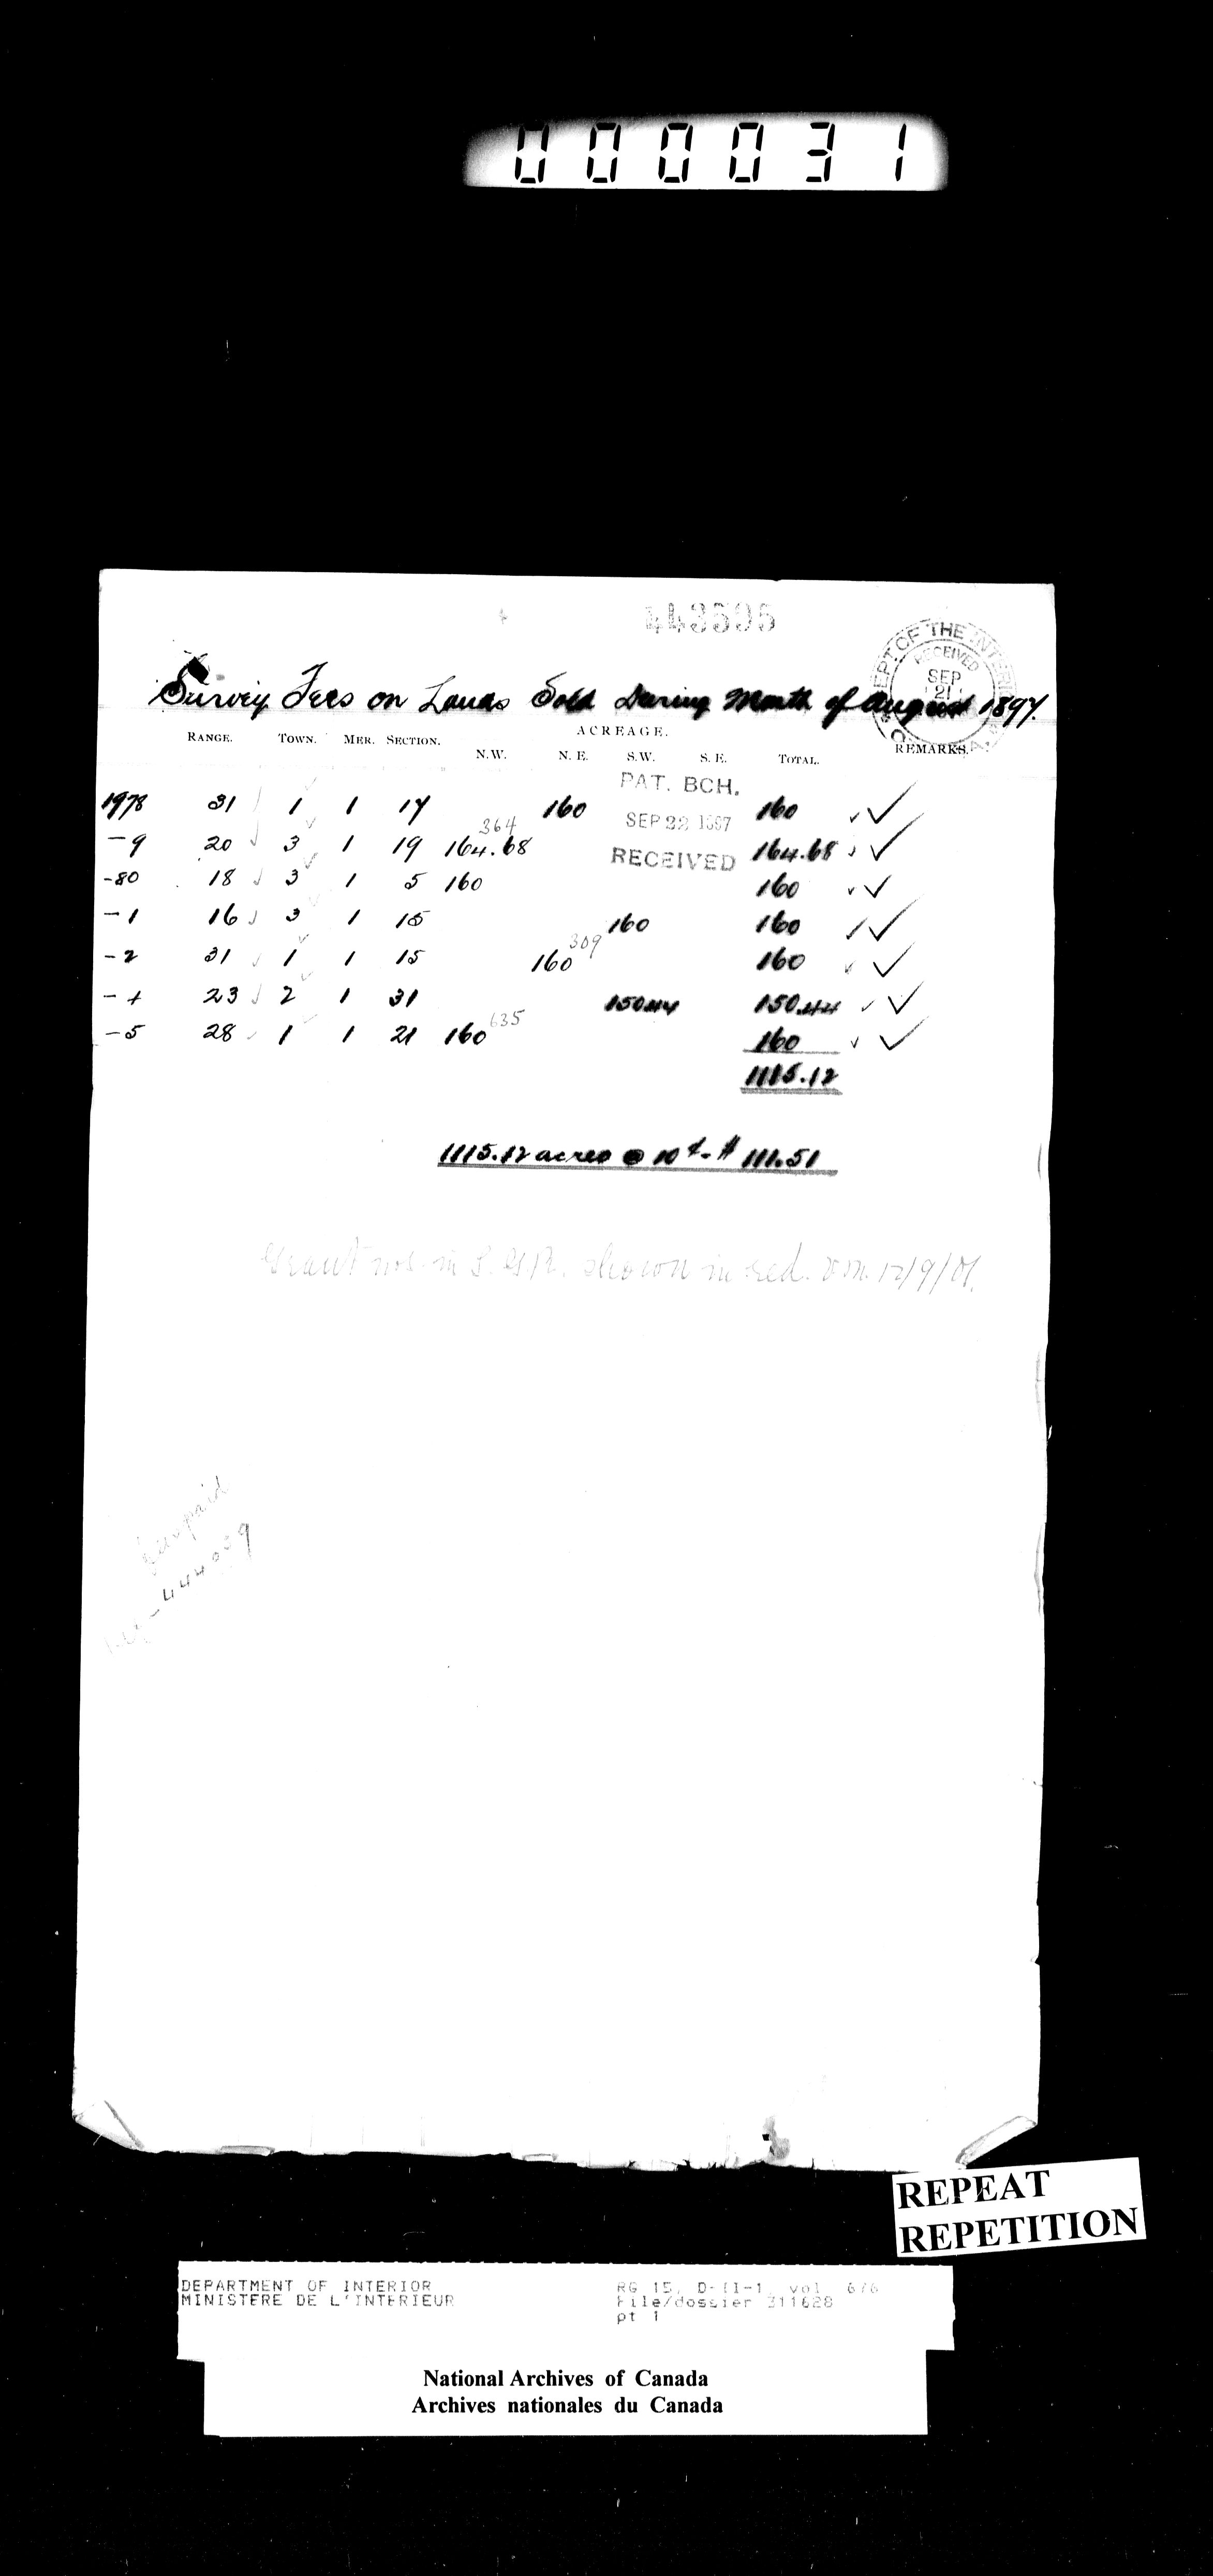 000031
443595
DEPT OF THE INTERIOR
RECEIVED
SEP
21
Survey Fees on Lands Sold During Month of August 1897.
ACREAGE.
RANGE. TOWN. MER. SECTION. N.W. N.E. S.W. S.E. TOTAL. REMARKS.
PAT. BCH.
1978 31 1 1 17 160 160 ✓✓
SEP 22 1897
364
-9 20 3 1 19 164.68 164.68 ✓✓
RECEIVED
-80 18 3 1 5 160 160 ✓✓
-1 16 3 1 15 160 160 ✓✓
309
-2 31 1 1 15 160 160 ✓✓
-4 23 2 1 31 150.44 150.44 ✓✓
635
-5 28 1 1 21 160 160 ✓✓
1115.12
1115.12 acres @ 10¢ - $ 111.51
Grant nos. in shown in red. 12/9/01.
444059
REPEAT
REPETITION
DEPARTMENT OF INTERIOR
MINISTERE DE L'INTERIEUR
RG 15, D-II-1, vol. 676
File/dossier 311628
pt 1
National Archives of Canada
Archives nationales du Canada